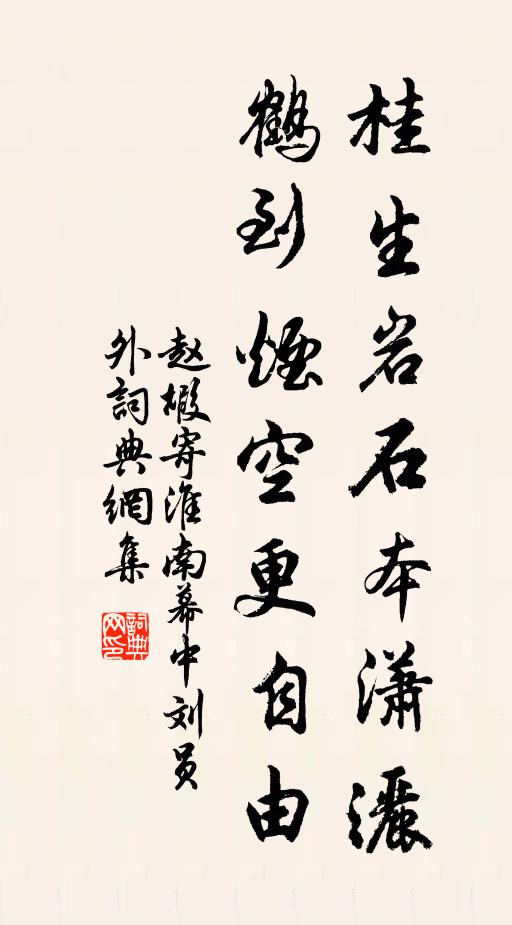 桂生岩石本潇灑
鶴到煙空更自由
赵嘏寄淮南幕中刘员
外詞典網集
詞典网印